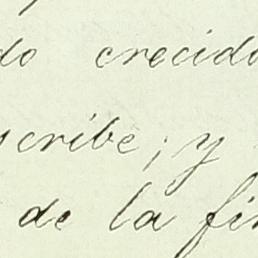 do crecido
scribe; y
de la fir